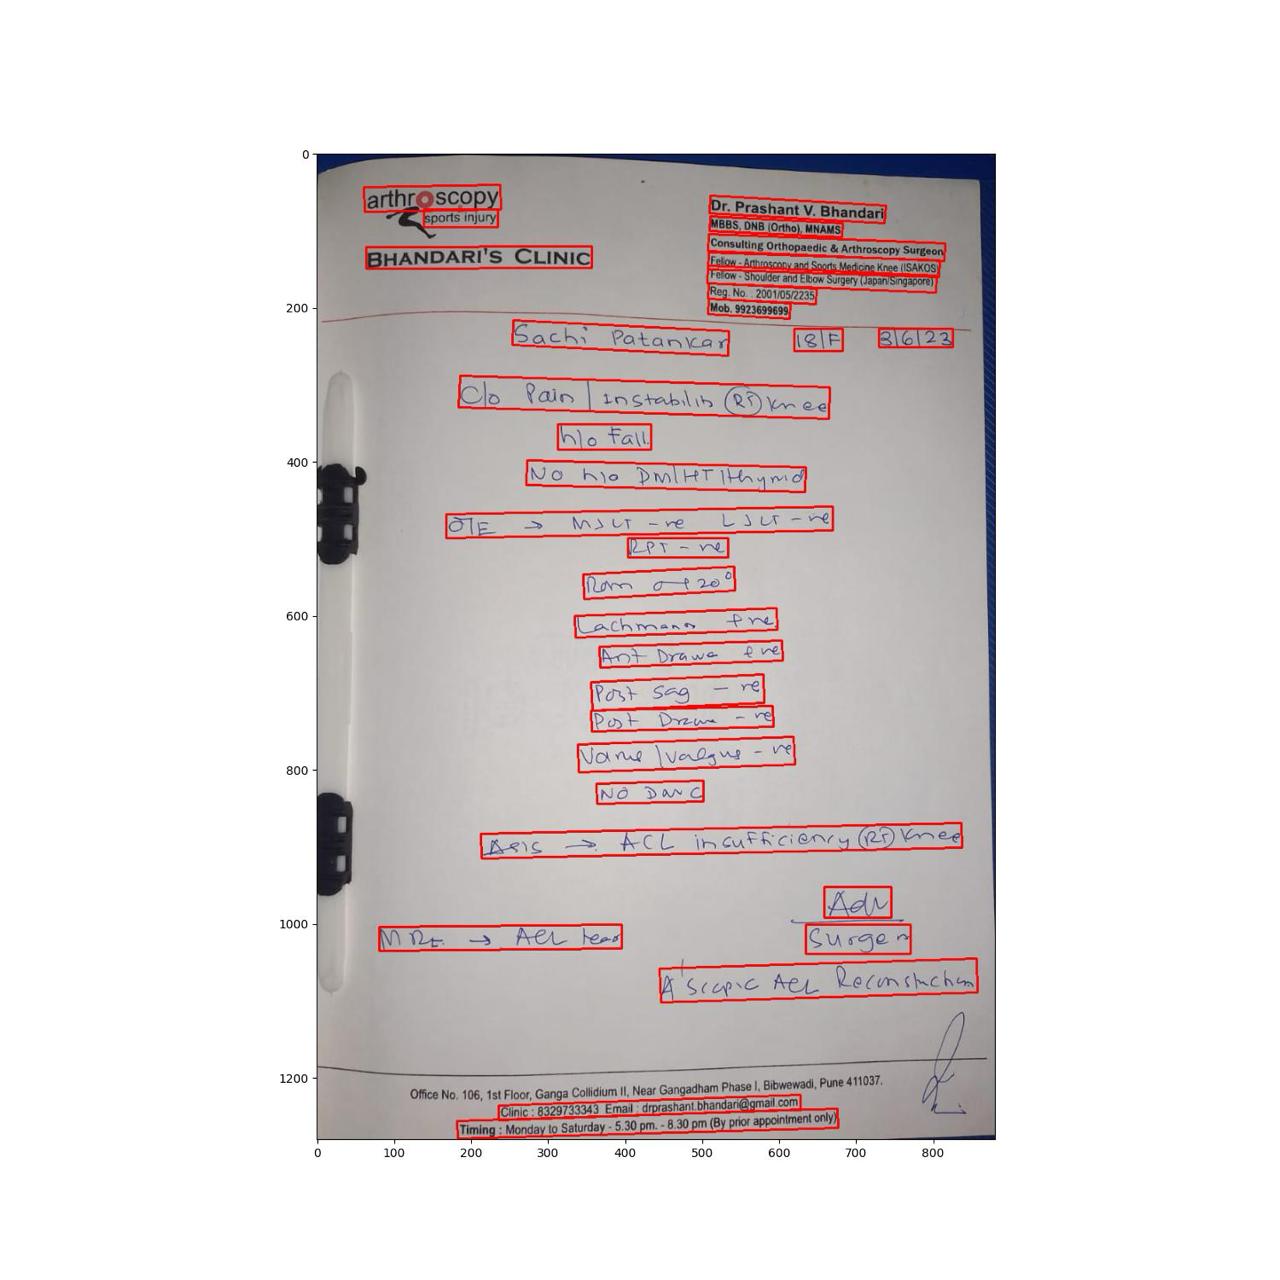 arthroscopy
sports injury
BHANDARI'S CLINIC
Dr. Prashant V. Bhandari
MBBS, DNB (Ortho), MNAMS
Consulting Orthopaedic & Arthroscopy Surgeon
Fellow - Arthroscopy and Sports Medicine Knee (ISAKOS)
Fellow - Shoulder and Elbow Surgery (Japan/Singapore)
Reg. No. : 2001/05/2235
Mob. 9923699699
Sachi Patankar 18/F 3/6/23
C/o Pain / instability (RT) Knee
h/o Fall.
No h/o DM/HT/thyroid
O/E → MJLT -ve LJLT -ve
RPT -ve
Lachmann +ve
Ant Drawe +ve
Post Sag -ve
Post Drawe -ve
Varus / valgus -ve
NO DNVC
→ ACL insufficiency (RT) Knee
Adv
MRI → ACL tear
Surgery
A'scopic ACL Reconstruction
Office No. 106, 1st Floor, Ganga Collidium II, Near Gangadham Phase I, Bibwewadi, Pune 411037.
Clinic : 8329733343 Email : drprashant.bhandari@gmail.com
Timing : Monday to Saturday - 5.30 pm. - 8.30 pm (By prior appointment only)
0
200
400
600
800
1000
1200
0 100 200 300 400 500 600 700 800